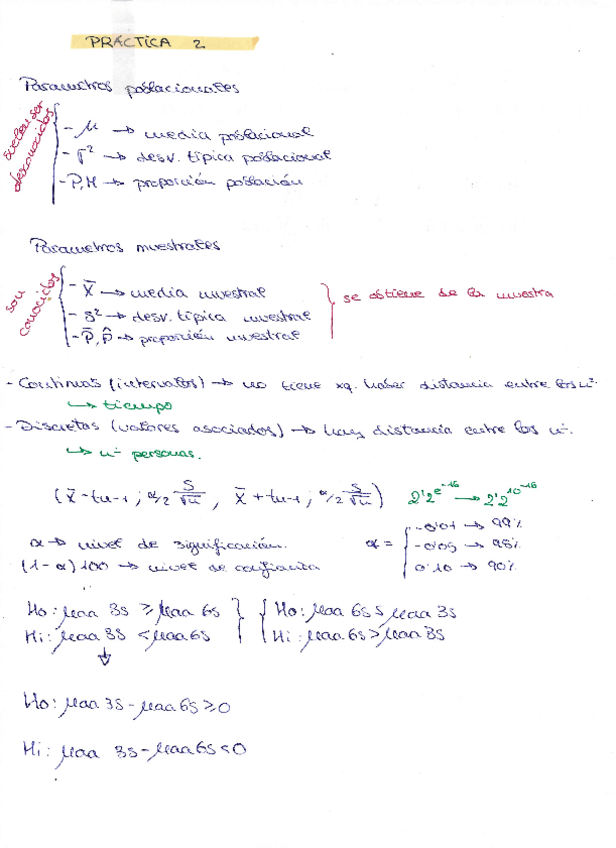 PRÁCTICA 2
Parametros poblacionales
suelen ser desconocidos
- μ → media poblacional
- σ² → desv. típica poblacional
- P, π → proporción población
Parametros muestrales
son conocidos
- x̄ → media muestral
- s² → desv. típica muestral
- p̄, p̂ → proporción muestral
se obtiene de la muestra
- Continuas (intervalos) → no tiene xq. haber distancia entre los nº.
↳ tiempo
- Discretas (valores asociados) → hay distancia entre los nº.
↳ nº personas.
(x̄ - tn-1; α/2 S/√n , x̄ + tn-1; α/2 S/√n) 2'2e⁻¹⁶ → 2'2 10⁻¹⁶
α → nivel de significación.
(1-α)100 → nivel de confianza
α = { - 0'01 → 99%
- 0'05 → 95%
0'10 → 90%
Ho: μaa 3s ≥ μaa 6s } { Ho: μaa 6s ≤ μaa 3s
Hi: μaa 3s < μaa 6s } { Hi: μaa 6s > μaa 3s
↓
Ho: μaa 3s - μaa 6s ≥ 0
Hi: μaa 3s - μaa 6s < 0